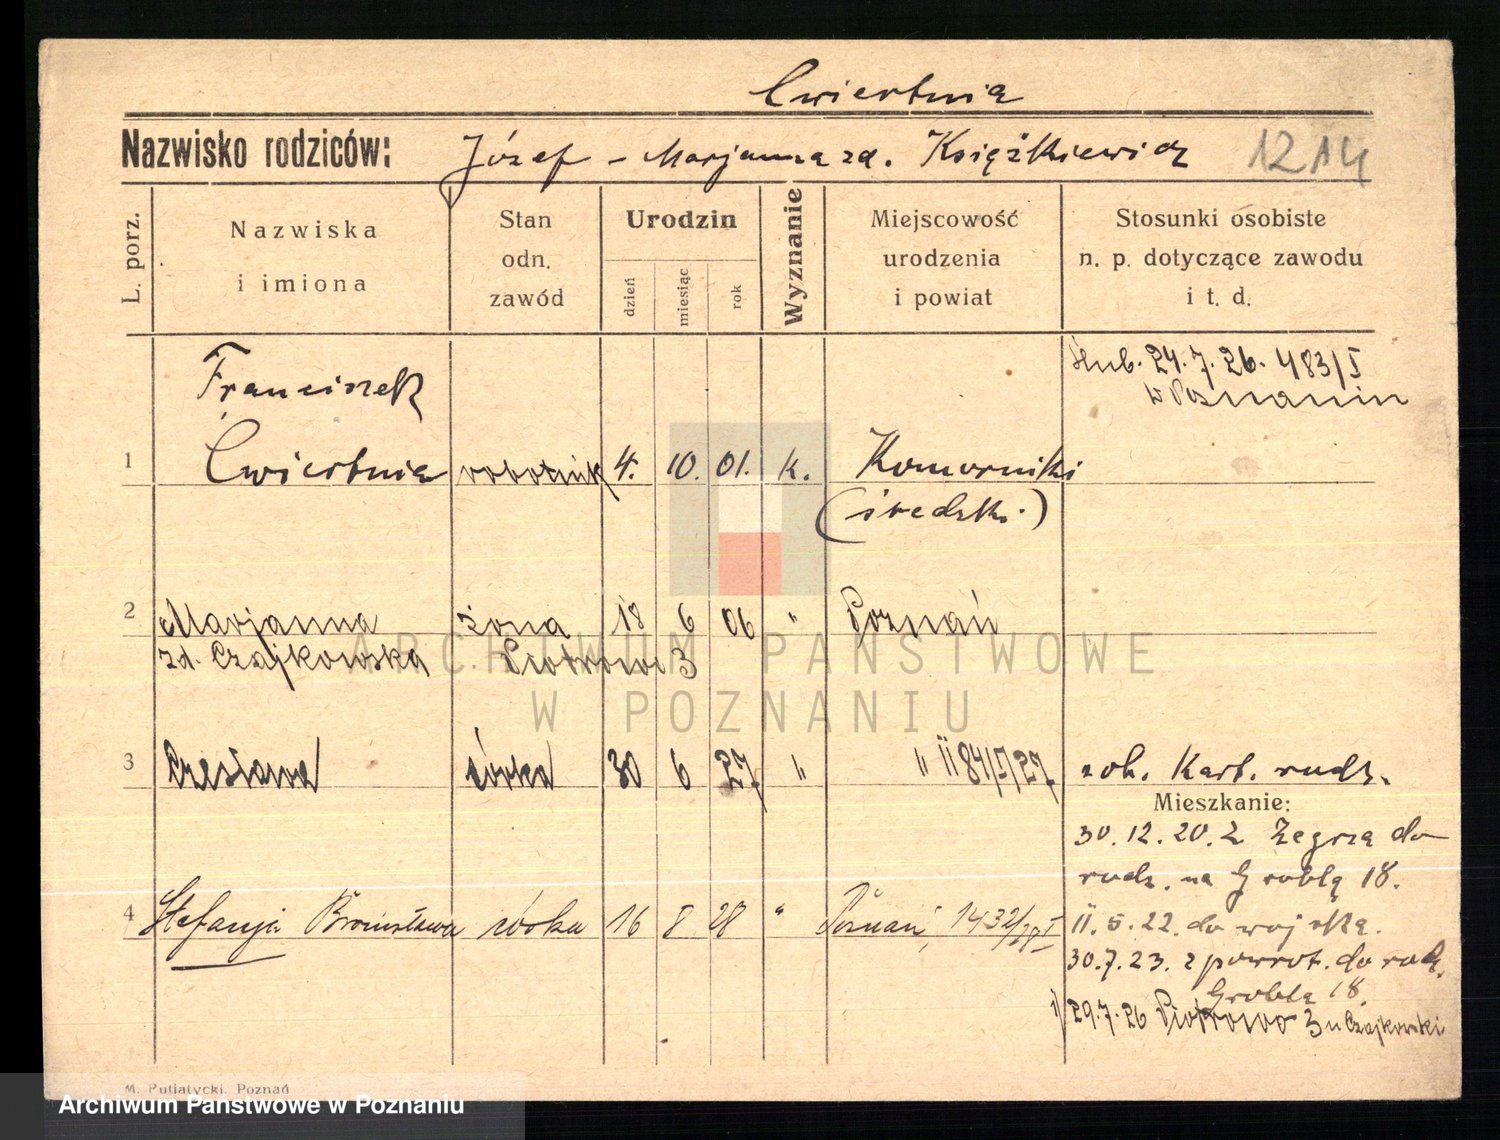 Cwiertnia
Nazwisko rodziców: Józef - Marjanna zd. Książkiewicz 1214
L. porz.
Nazwiska
i imiona
Stan
odn.
zawód
Urodzin
dzień
miesiąc
rok
Wyznanie
Miejscowość
urodzenia
i powiat
Stosunki osobiste
n. p. dotyczące zawodu
i t. d.
ślub. 24.7.26. 483/I
w Poznaniu
Franciszek
1 Cwiertnia robotnik 4. 10. 01. k. Komorniki
(średzki.)
2 Marjanna żona 18 6 06 " Poznań
zd. Czajkowska Piotrowo 3
3 Czesława córka 30 6 27 " " II 84/I/27 zob. Kart. rodz.
Mieszkanie:
30.12.20. z Zegrza do
rodz. na Groblą 18.
4 Stefanja Bronisława córka 16 8 28 " Poznań, 1432/28 I
11.5.22. do wojska.
30.7.23. z powrot. do rodz.
Grobla 18.
1/29.7.26 Piotrowo 3 u Czajkowski
M. Putiatycki, Poznań
ARCHIWUM PAŃSTWOWE
W POZNANIU
Archiwum Państwowe w Poznaniu